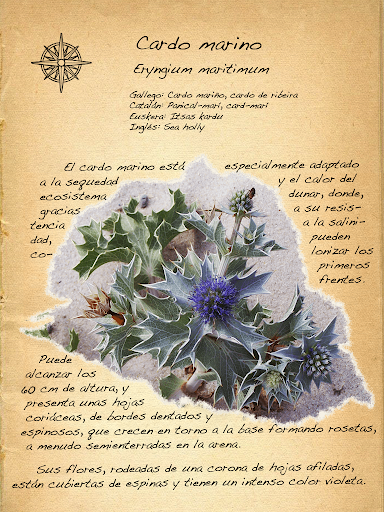 Cardo marino
Eryngium maritimum
Gallego: Cardo mariño, cardo de ribeira
Catalán: Panical-marí, card-marí
Euskera: Itsas kardu
Inglés: Sea holly
El cardo marino está especialmente adaptado
a la sequedad y el calor del
ecosistema dunar, donde,
gracias a su resis-
tencia a la salini-
dad, pueden
co- lonizar los
primeros
frentes.
Puede
alcanzar los
60 cm de altura, y
presenta unas hojas
coriáceas, de bordes dentados y
espinosos, que crecen en torno a la base formando rosetas,
a menudo semienterradas en la arena.
Sus flores, rodeadas de una corona de hojas afiladas,
están cubiertas de espinas y tienen un intenso color violeta.